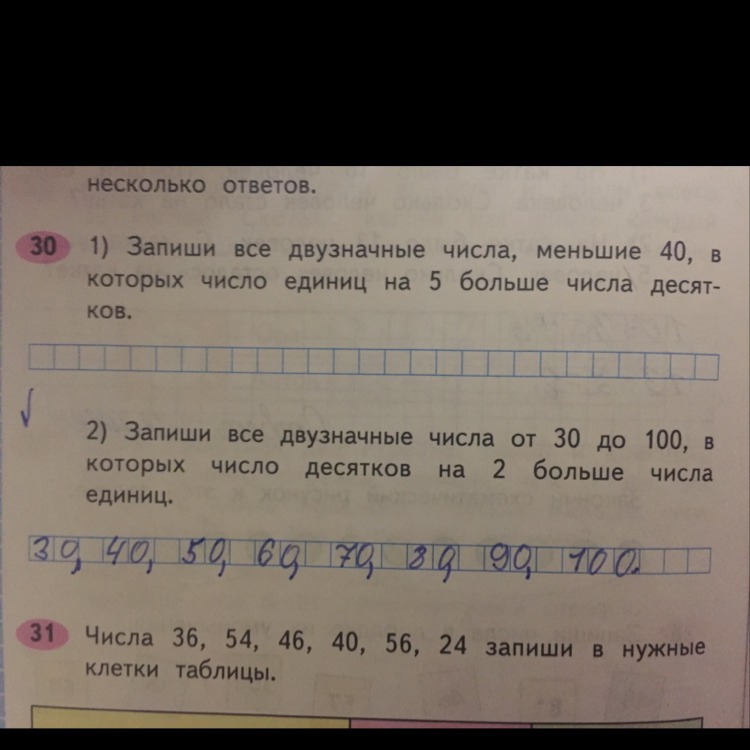 несколько ответов.
30 1) Запиши все двузначные числа, меньшие 40, в
которых число единиц на 5 больше числа десят-
ков.
2) Запиши все двузначные числа от 30 до 100, в
которых число десятков на 2 больше числа
единиц.
30, 40, 50, 60, 70, 80, 90, 100.
31 Числа 36, 54, 46, 40, 56, 24 запиши в нужные
клетки таблицы.